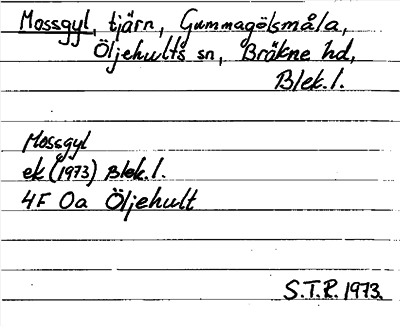 Mossgyl, tjärn, Gummagölsmåla,
Öljehults sn, Bräkne hd,
Blek.l.
Mossgyl
ek (1973) Blek.l.
4F 0a Öljehult
S.T.R. 1973.